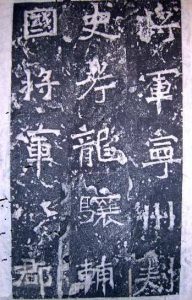 將軍寧州刺
史考龍驤輔
國將軍八郡